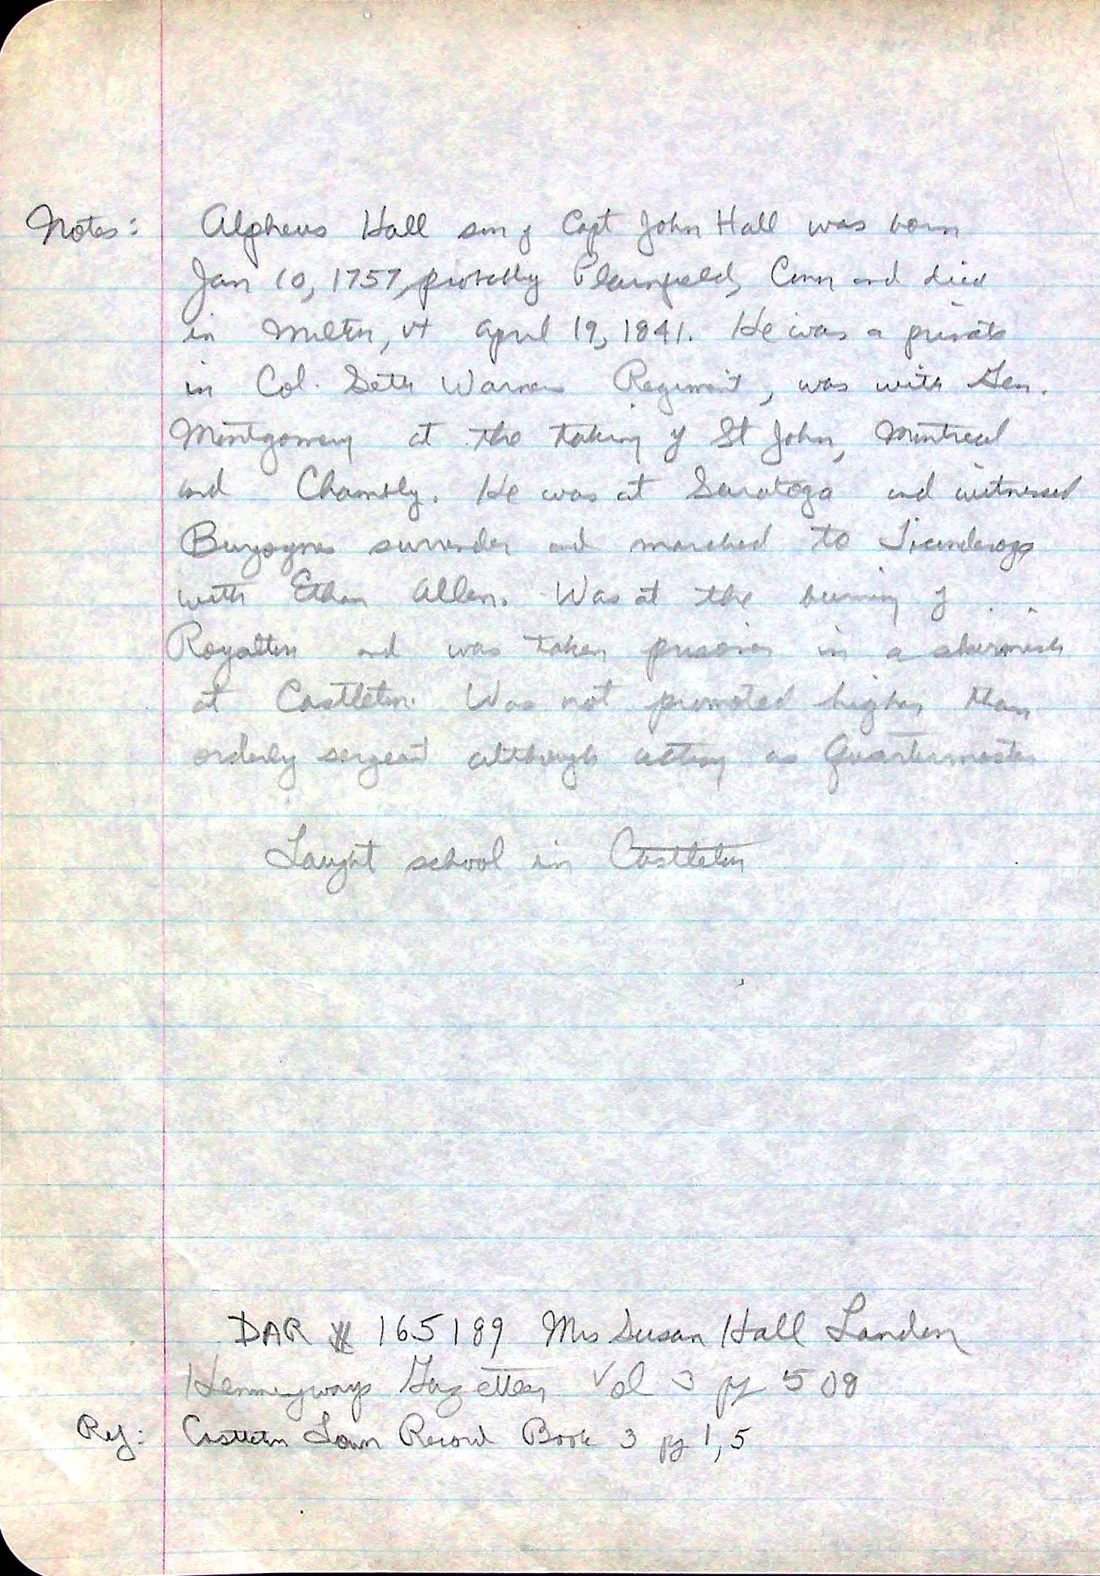 Notes: Alpheus Hall son of Capt John Hall was born
Jan 10, 1757, probably Plainfield, Conn and died
in Milton, Vt April 19, 1841. He was a private
in Col. Seth Warners Regiment, was with Gen.
Montgomery at the taking of St John, Montreal
and Chambly. He was at Saratoga and witnessed
Burgoynes surrender and marched to Ticonderoga
with Ethan Allen. Was at the burning of
Royalton and was taken prisoner in a skirmish
at Castleton. Was not promoted higher than
orderly sergeant although acting as Quartermaster
Taught school in Castleton
DAR # 165189 Mrs Susan Hall Landon
Hemmingways Gazetteer Vol 3 pg 508
Ref: Castleton Town Record Book 3 pg 1, 5